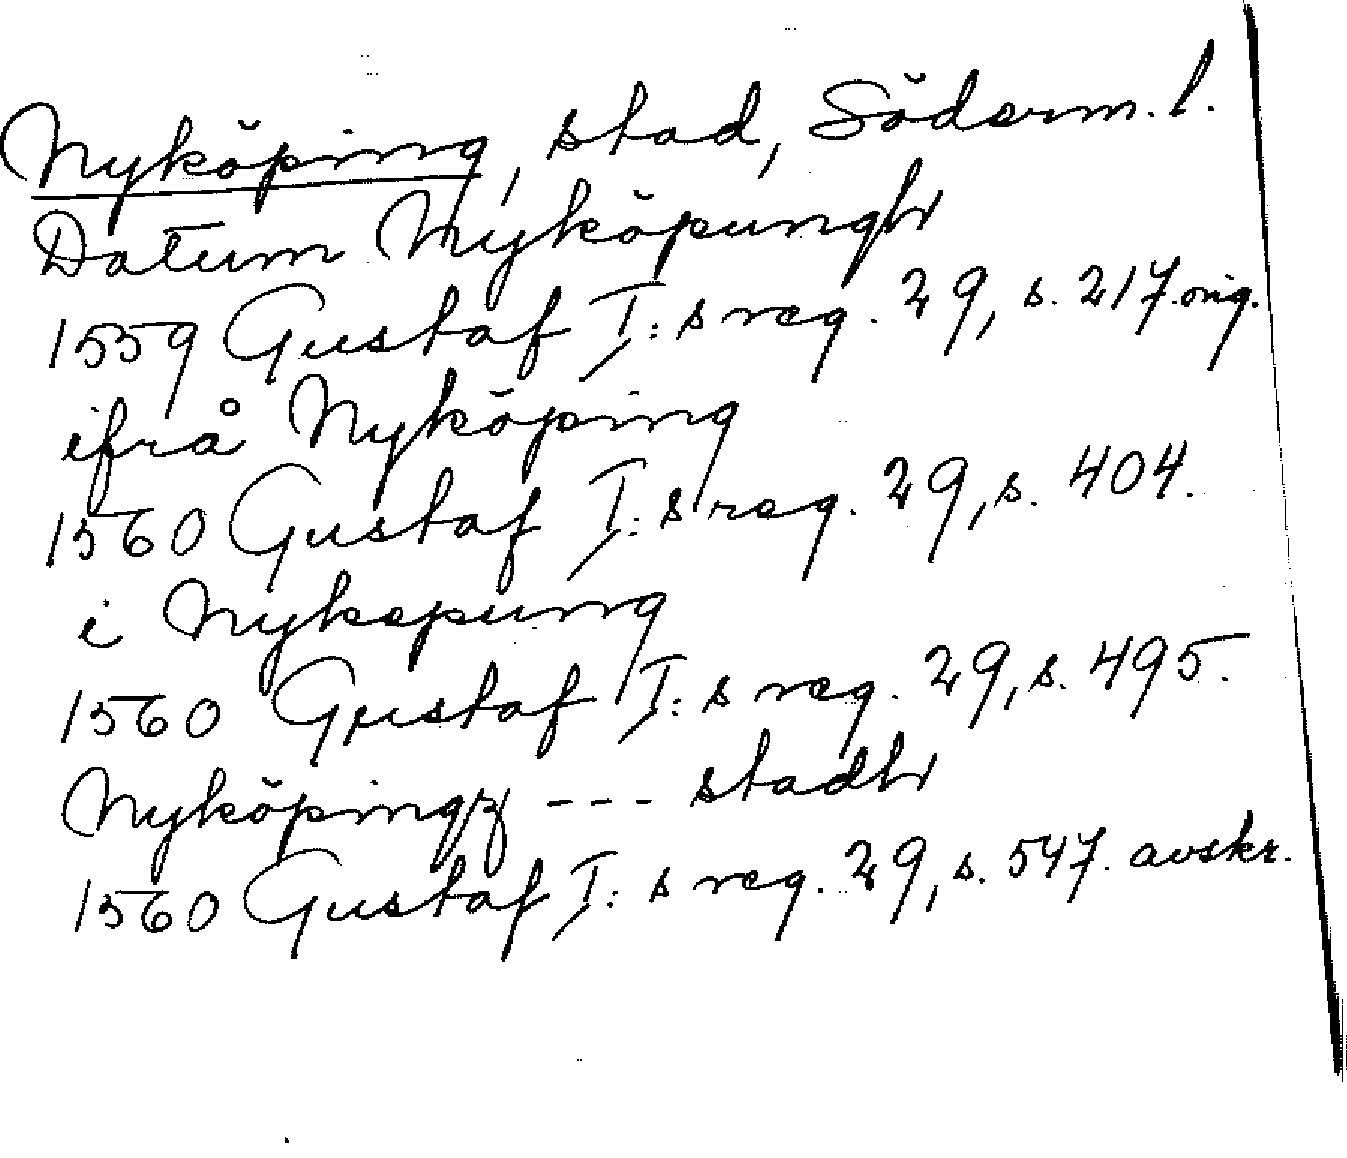 Nyköping, stad, Söderm. l.
Datum Nyköpungh
1559 Gustaf I:s reg. 29, s. 217. orig.
ifrå Nyköping
1560 Gustaf I:s reg. 29, s. 404.
i Nykepung
1560 Gustaf I:s reg. 29, s. 495.
Nyköpingz --- stadh
1560 Gustaf I:s reg. 29, s. 547. avskr.